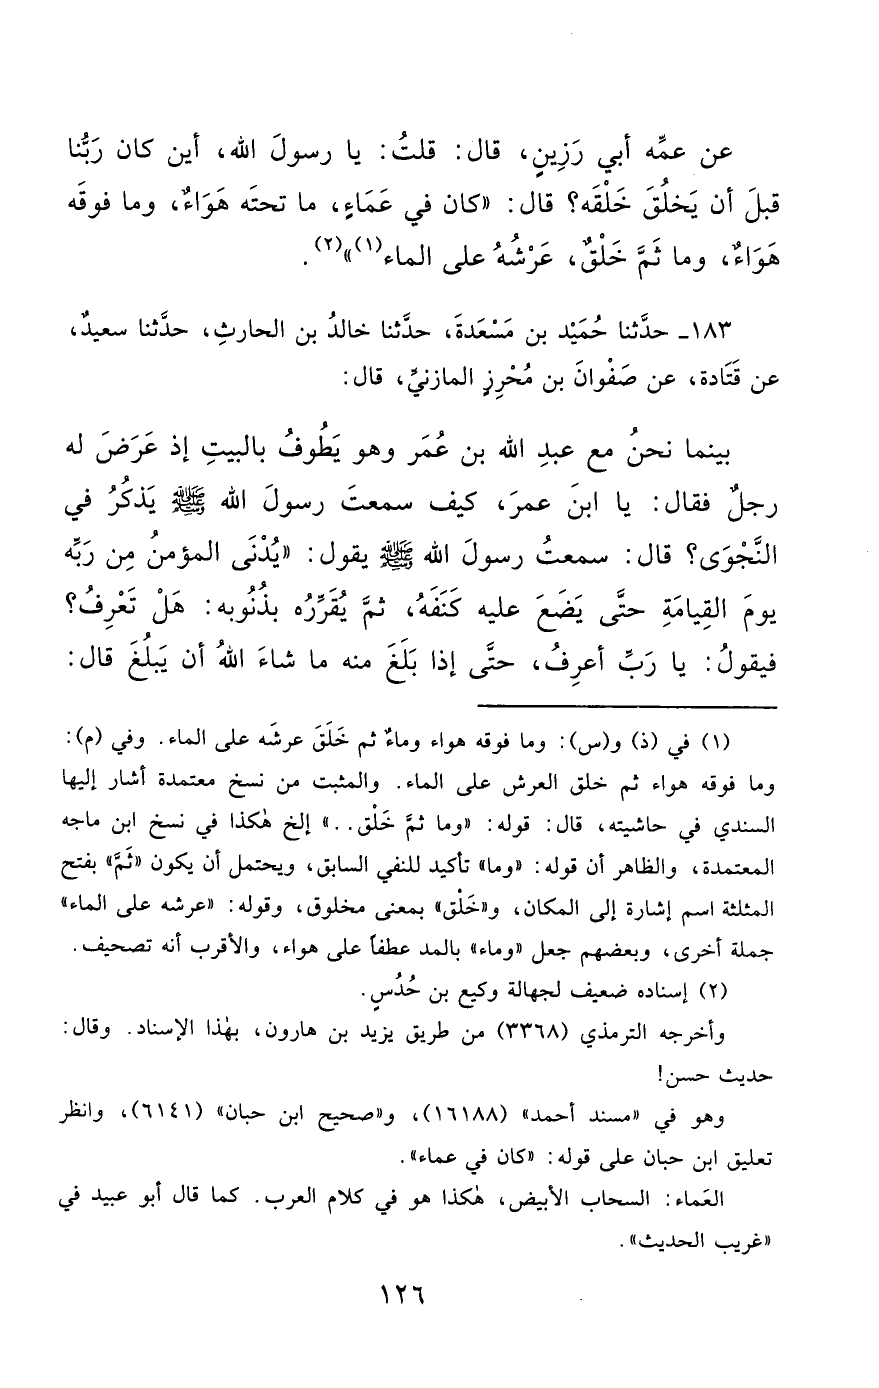 عن عمِّه أبي رَزِينٍ، قال: قلتُ: يا رسولَ الله، أين كان رَبُّنا
قبلَ أن يَخلُقَ خَلْقَه؟ قال: «كان في عَمَاءٍ، ما تحتَه هَوَاءٌ، وما فوقَه
هَوَاءٌ، وما ثَمَّ خَلْقٌ، عَرْشُهُ على الماء(١)»(٢).
١٨٣ـ حدَّثنا حُمَيْد بن مَسْعَدةَ، حدَّثنا خالدُ بن الحارثِ، حدَّثنا سعيدٌ،
عن قَتَادة، عن صَفْوانَ بن مُحْرِزٍ المازنيِّ، قال:
بينما نحنُ مع عبدِ الله بن عُمَر وهو يَطُوفُ بالبيتِ إذ عَرَضَ له
رجلٌ فقال: يا ابنَ عمرَ، كيف سمعتَ رسولَ الله ﷺ يَذكُرُ في
النَّجْوَى؟ قال: سمعتُ رسولَ الله ﷺ يقول: «يُدْنَى المؤمنُ مِن رَبِّه
يومَ القِيامَةِ حتَّى يَضَعَ عليه كَنَفَهُ، ثمَّ يُقَرِّرُه بذُنُوبه: هَلْ تَعْرِفُ؟
فيقولُ: يا رَبِّ أعرِفُ، حتَّى إذا بَلَغَ منه ما شاءَ اللهُ أن يَبلُغَ قال:
(١) في (ذ) و(س): وما فوقه هواء وماءٌ ثم خَلَقَ عرشَه على الماء. وفي (م):
وما فوقه هواء ثم خلق العرش على الماء. والمثبت من نسخ معتمدة أشار إليها
السندي في حاشيته، قال: قوله: «وما ثمَّ خَلْق..» إلخ هٰكذا في نسخ ابن ماجه
المعتمدة، والظاهر أن قوله: «وما» تأكيد للنفي السابق، ويحتمل أن يكون «ثَمَّ» بفتح
المثلثة اسم إشارة إلى المكان، و«خَلْق» بمعنى مخلوق، وقوله: «عرشه على الماء»
جملة أخرى، وبعضهم جعل «وماء» بالمد عطفاً على هواء، والأقرب أنه تصحيف.
(٢) إسناده ضعيف لجهالة وكيع بن حُدُسٍ.
وأخرجه الترمذي (٣٣٦٨) من طريق يزيد بن هارون، بهٰذا الإسناد. وقال:
حديث حسن!
وهو في «مسند أحمد» (١٦١٨٨)، و«صحيح ابن حبان» (٦١٤١)، وانظر
تعليق ابن حبان على قوله: «كان في عماء».
العَماء: السحاب الأبيض، هٰكذا هو في كلام العرب. كما قال أبو عبيد في
«غريب الحديث».
١٢٦